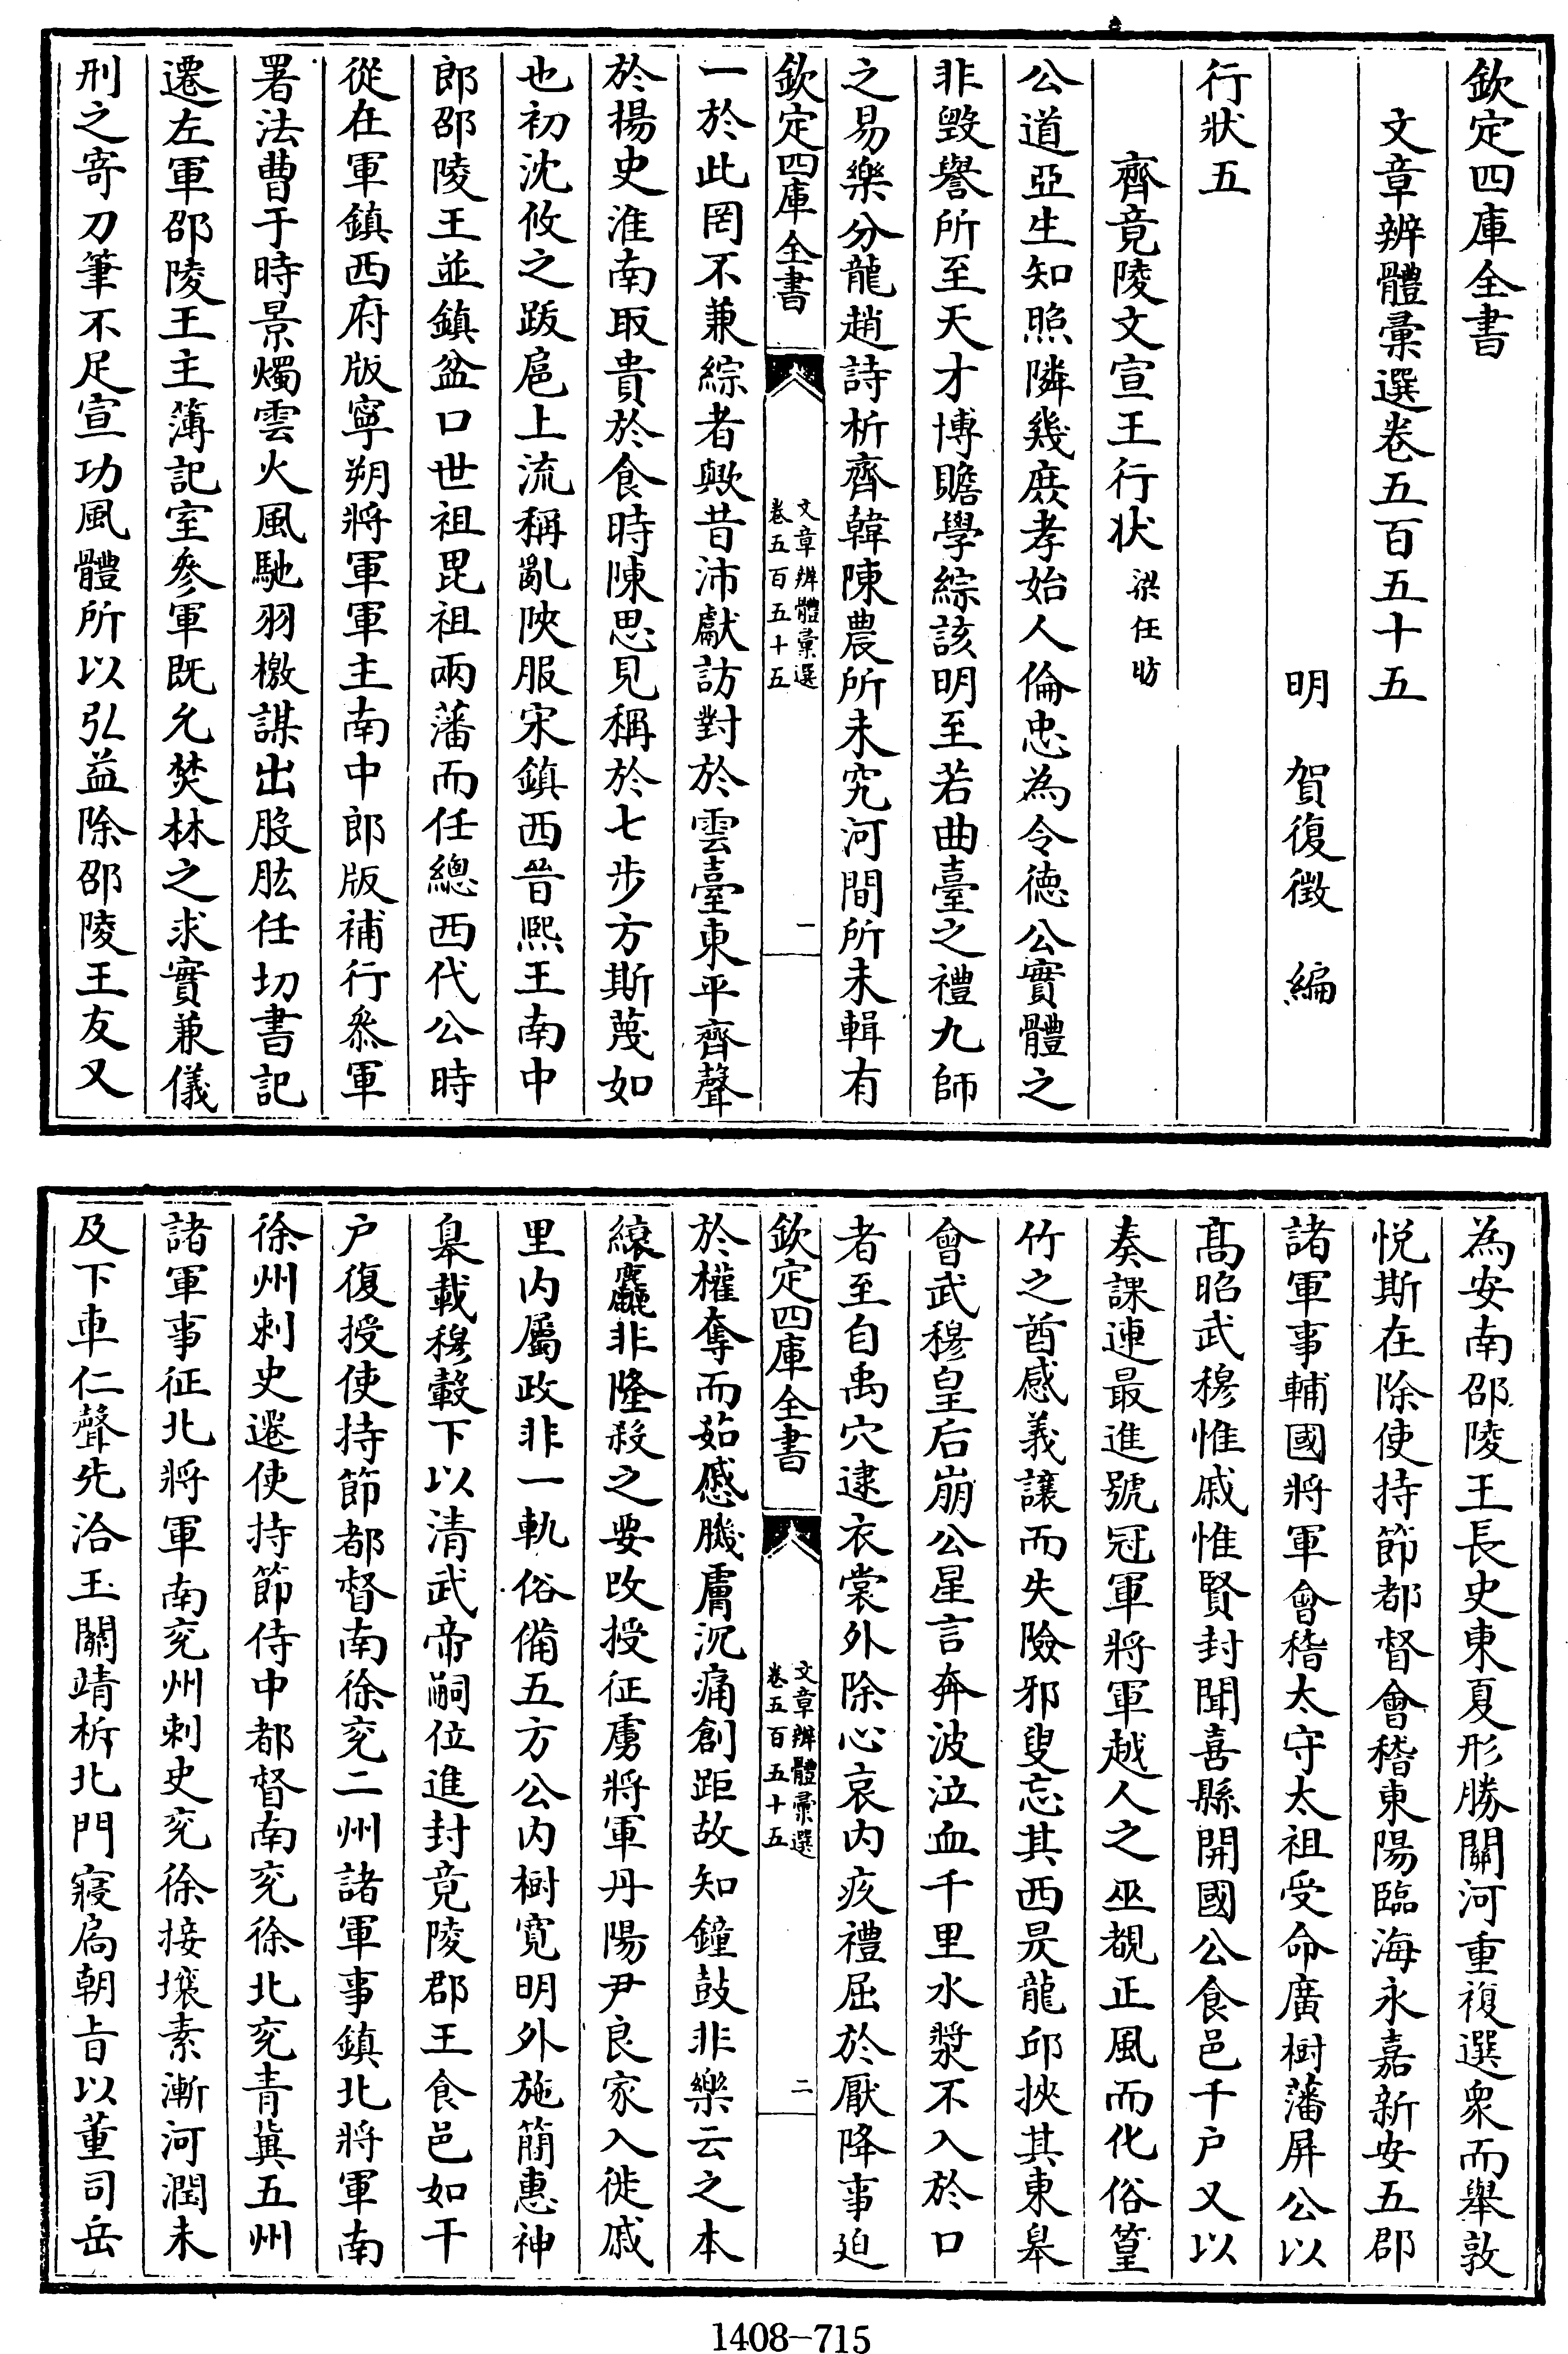 欽定四庫全書
文章辨體彙選卷五百五十五
明 賀復徵 編
行狀五
齊竟陵文宣王行狀 梁任昉
公道亞生知照隣幾庶孝始人倫忠為令德公實體之
非毀譽所至天才博贍學綜該明至若曲臺之禮九師
之易樂分龍趙詩析齊韓陳農所未究河間所未輯有
欽定四庫全書
文章辨體彙選
卷五百五十五
一
一於此罔不兼綜者歟昔沛獻訪對於雲臺東平齊聲
於揚史淮南取貴於食時陳思見稱於七步方斯蔑如
也初沈攸之跋扈上流稱亂陜服宋鎮西晉熙王南中
郎邵陵王並鎮盆口世祖毘祖兩藩而任總西代公時
從在軍鎮西府版寧朔將軍軍主南中郎版補行叅軍
署法曹于時景燭雲火風馳羽檄謀出股肱任切書記
遷左軍邵陵王主簿記室參軍既允焚林之求實兼儀
刑之寄刀筆不足宣功風體所以弘益除邵陵王友又
為安南邵陵王長史東夏形勝關河重複選衆而舉敦
悦斯在除使持節都督會稽東陽臨海永嘉新安五郡
諸軍事輔國將軍會稽太守太祖受命廣樹藩屏公以
髙昭武穆惟戚惟賢封聞喜縣開國公食邑千户又以
奏課連最進號冠軍將軍越人之巫覩正風而化俗篁
竹之酋感義讓而失險邪叟忘其西昃龍邱挾其東皋
會武穆皇后崩公星言奔波泣血千里水漿不入於口
者至自禹穴逮衣裳外除心哀内疚禮屈於厭降事迫
欽定四庫全書
文章辨體彙選
卷五百五十五
二
於權奪而茹慼肌膚沉痛創距故知鐘鼓非樂云之本
縗麤非隆殺之要改授征虜將軍丹陽尹良家入徙戚
里内屬政非一軌俗備五方公内樹寛明外施簡惠神
皋載穆轂下以清武帝嗣位進封竟陵郡王食邑如干
户復授使持節都督南徐兖二州諸軍事鎮北將軍南
徐州刺史遷使持節侍中都督南兖徐北兖青冀五州
諸軍事征北將軍南兖州刺史兖徐接壤素漸河潤未
及下車仁聲先洽玉關靖柝北門寢扃朝旨以董司岳
1408-715